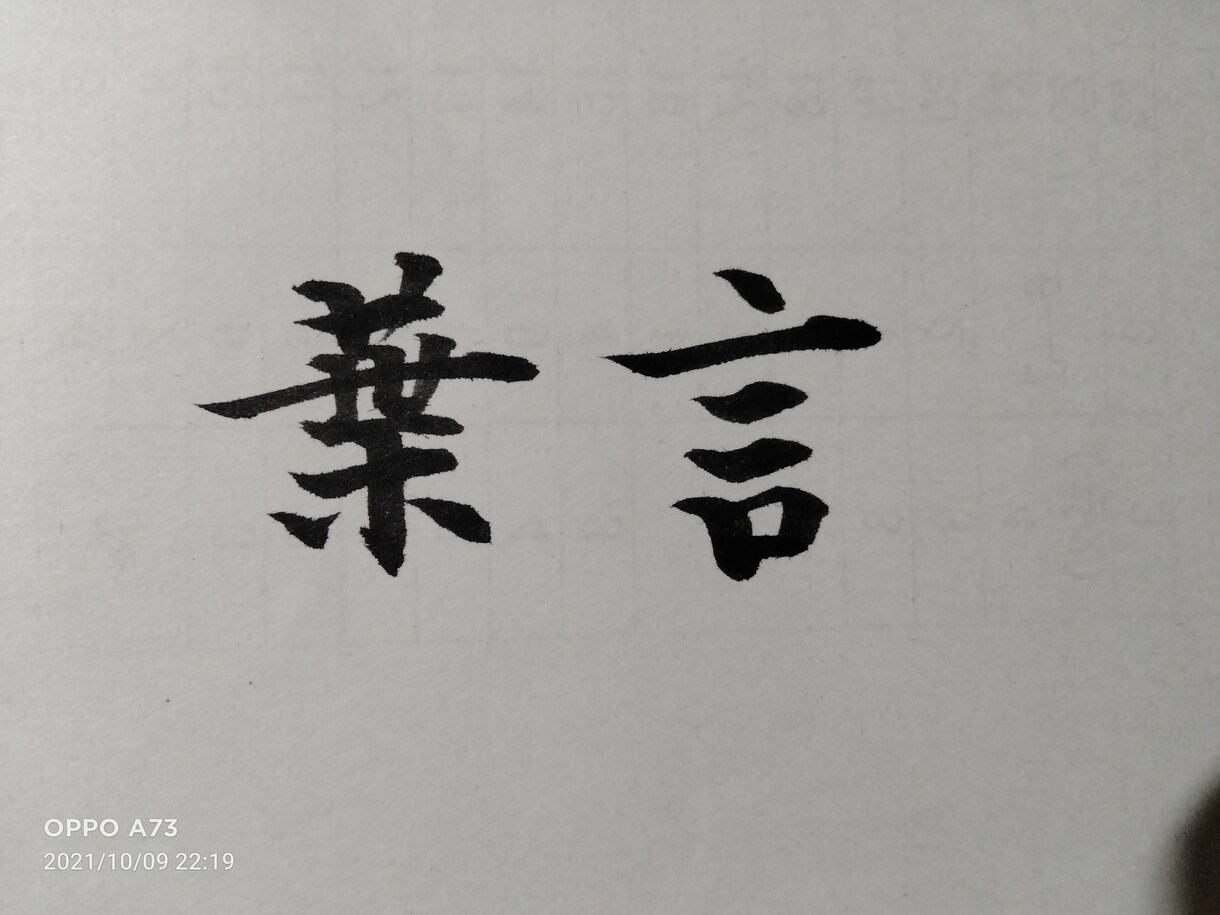 葉言
OPPO A73
2021/10/09 22:19